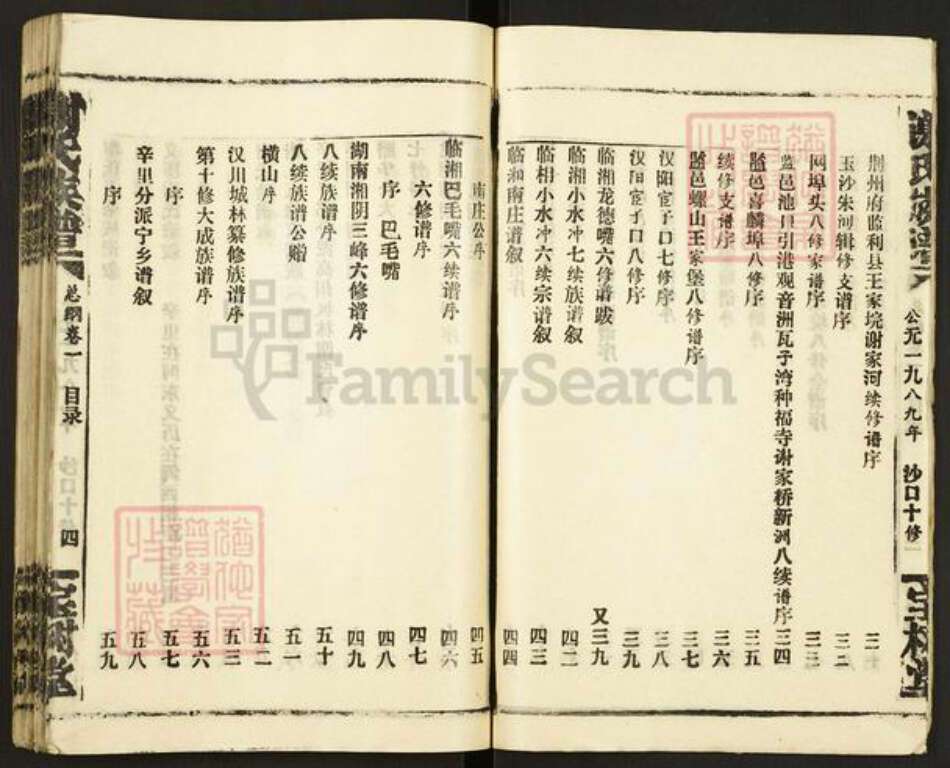 谢氏族谱
公元一九八九年 沙口十修
宝树堂
荆州府监利县王家垸谢家河续修谱序
玉沙朱河辑修支谱序 三二
网埠头八修家谱序 三三
监邑池口引港观音洲瓦子湾种福寺谢家桥新洲八续谱序 三四
监邑喜麟埠八修序 三五
续修支谱序 三六
监邑螺山王家堡八修谱序 三七
汉阳宦子口七修序 三八
汉阳宦子口八修序 三九
临湘龙德嘴六修谱跋 又三九
临湘小水冲七续族谱叙 四二
临相小水冲六续宗谱叙 四三
临湘南庄谱叙 四四
南庄公序 四五
临湘巴毛嘴六续谱序 四六
六修谱序 四七
序 巴毛嘴 四八
湖南湘阴三峰六修谱序 四九
八续族谱序 五十
八续族谱公赠 五一
横山序 五二
汉川城林纂修族谱序 五三
第十修大成族谱序 五六
序 五七
辛里分派宁乡谱叙 五八
序 五九
谢氏族谱
总纲卷一 目录 四
宝树堂
FamilySearch